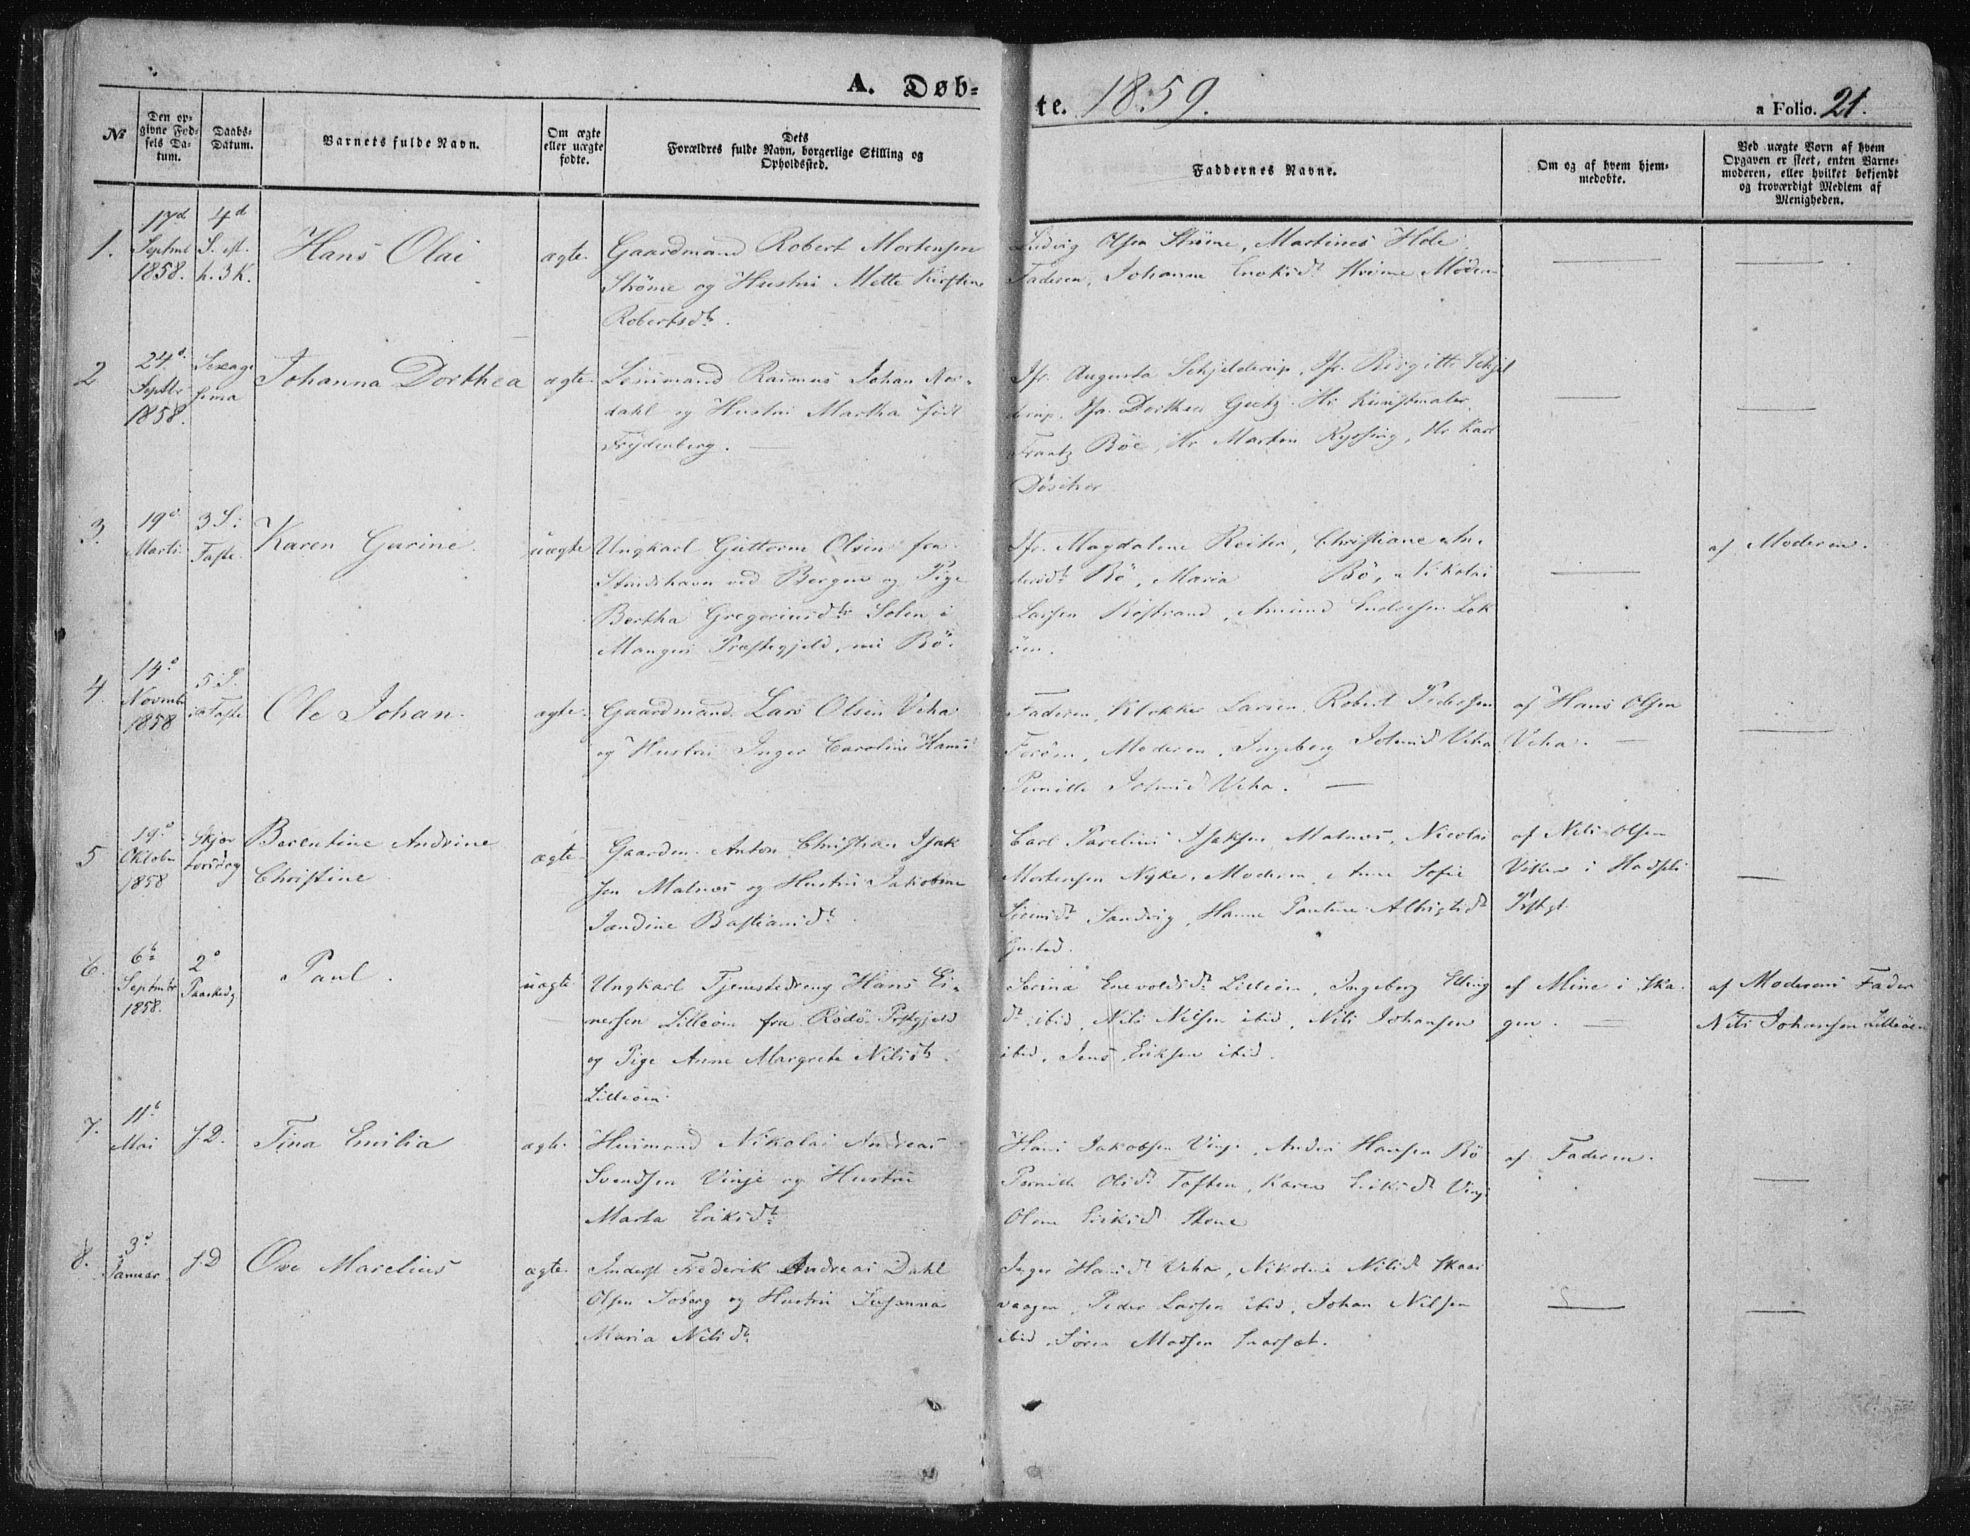 A. Døb-
te. 1859.
a Folio. 21.
No
Den op-
givne Fød-
sels Da-
tum.
Daabs-
Datum.
Barnets fulde Navn.
Om ægte
eller uægte
fødte.
Dets
Forældres fulde Navn, borgerlige Stilling og
Opholdssted.
Faddernes Navne.
Om og af hvem hjem-
medøbte.
Ved uægte Børn af hvem
Opgaven er skeet, enten Barne-
moderen, eller hvilket bekjendt
og troværdigt Medlem af
Menigheden.
1.
17d
Septmb
1858.
4d
S. eft.
h. 3 K.
Hans Olai
ægte.
Gaardmand Robert Mortensen
Strøme og Hustru Mette Kirstine
Robertsdt.
Ludvig Olsen Strøme, Martinus Hole
Faderen, Johanne Moderen
2
24d
Septbr
1858.
Sexage
sima
Johanna Dorthea
ægte.
Rasmus Johan Nor-
dahl og Hustru Martha født
Frydenberg.
Jfr. Augusta Schjelderup, Jfr. Birgitte Schjel
derup, Jfr. Dorthea Hr Kunstmaler
Frantz Bøe, Hr Morten Hr Karl
3.
19d
Marti.
3 S. i
Faste.
Karen Gurine.
uægte
Ungkarl Guttorm Olsen fra
ved Bergen og Pige
Bertha Gregoriusdtr Solen i
Mangers Præstegjeld, nu Bö.
Jfr. Magdalene Christiane An-
dersdt Bö, Maria Bö, Nikolai
Larsen Amund Endresen Lok
öen.
af Moderen.
4.
14d
Novmbr
1858
5 S.
i Faste
Ole Johan.
ægte.
Gaardmand Lars Olsen Veha
og Hustru Inger Caroline Hans
Faderen, Klokker Larsen, Robert Pedersen
Moderen, Ingeborg Veha
Pernille Veha.
af Hans Olsen
Veha.
5
19d
Oktobr
1858
Skjær
torsdag
Berentine Andrine
Christine
ægte
Gaardm. Anton Christian Isak
sen Malnes og Hustru Jakobine
Bastiansdt.
Carl Parelius Isaksen Malnes, Nicolai
Mortensen Nyke, Moderen, Anne Sofie
Sandvig, Hanne Pauline
af Nils Olsen
Viken i Hadsels
Prstgj.
6.
6te
Septmbr
1858.
2d
Paaskedg
Paul.
uægte
Ungkarl Tjenestedreng Hans Ei-
nersen Lilleöen fra Rödö Prstgjeld
og Pige Anne Margrete Nilsdt.
Lilleöen
Serina Enevoldsdt Lilleöen, Ingeborg Elling
dt ibid, Nils Nilsen ibid, Nils Johansen
ibid, Jens Eriksen ibid.
af Mine i Ska-
gen.
af Moderens Fader
Nils Johansen Lilleöen
7.
11te
Mai
f.D.
Tina Emilia
ægte.
Huusmand Nikolai Andreas
Svendsen Vinje og Hustru
Marta Eriksdt.
Hans Jakobsen Vinje, Anders Hansen Bö
Pernille Olsdt Toften, Karen Eriksdt Vinje
Eriksdt Stene
af Faderen.
8.
3d
Januar
f.D
Ove Marelius
ægte.
Inderst Frederik Andreas Dahl
Olsen Soberg og Hustru Susanna
Maria Nilsdt.
Inger Hansdt Veha, Nikoline Nilsdt Skaar
vaagen, Peder Larsen ibid, Johan Nilsen
ibid, Sören Madsen